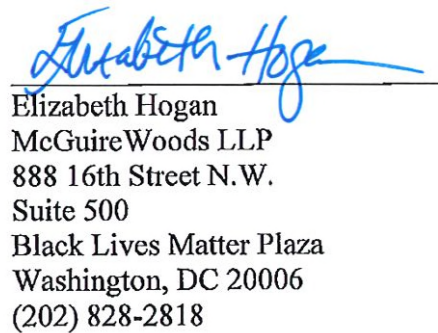 Elizabeth Hogan
Elizabeth Hogan
McGuireWoods LLP
888 16th Street N.W.
Suite 500
Black Lives Matter Plaza
Washington, DC 20006
(202) 828-2818